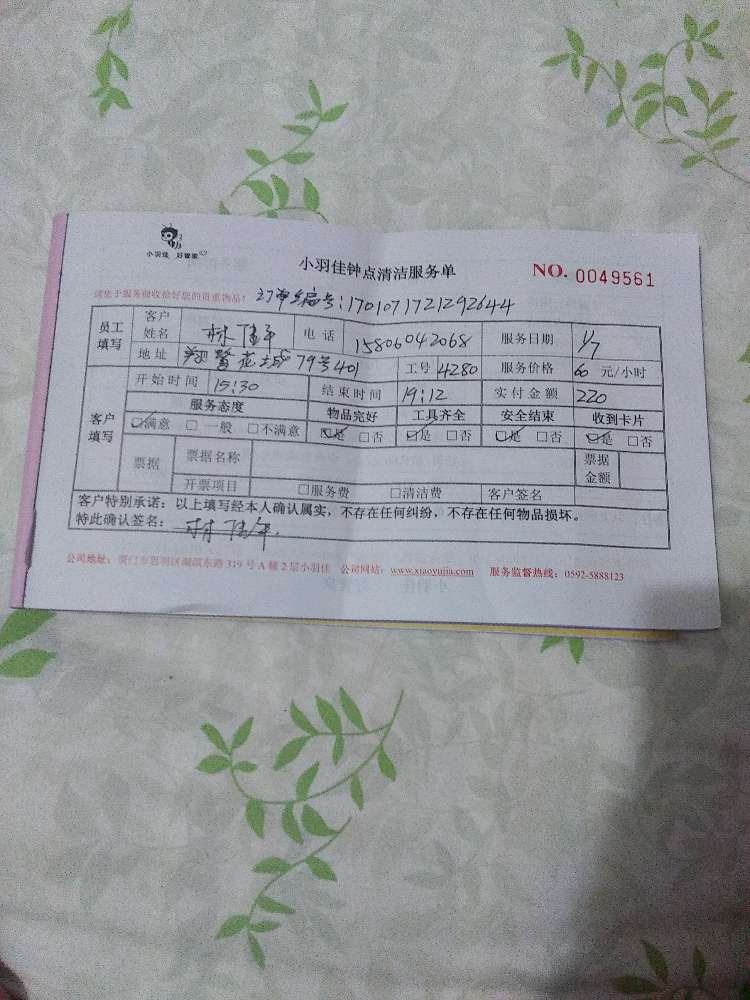 小羽佳 好管家
小羽佳钟点清洁服务单
NO. 0049561
请您于服务前收拾好您的贵重物品！ 订单编号:1701071721292644
员工填写 客户姓名 林佳年 电话 15806042068 服务日期 1/7
地址 翔鹭花城79号401 工号 4280 服务价格 60 元/小时
客户填写 开始时间 15:30 结束时间 19:12 实付金额 220
服务态度 物品完好 工具齐全 安全结束 收到卡片
☑满意 □一般 □不满意 ☑是 □否 ☑是 □否 ☑是 □否 ☑是 □否
票据 票据名称 票据金额
开票项目 □服务费 □清洁费 客户签名
客户特别承诺：以上填写经本人确认属实，不存在任何纠纷，不存在任何物品损坏。
特此确认签名： 林佳年
公司地址：厦门市思明区湖滨东路319号A幢2层小羽佳 公司网站：www.xiaoyujia.com 服务监督热线：0592-5888123